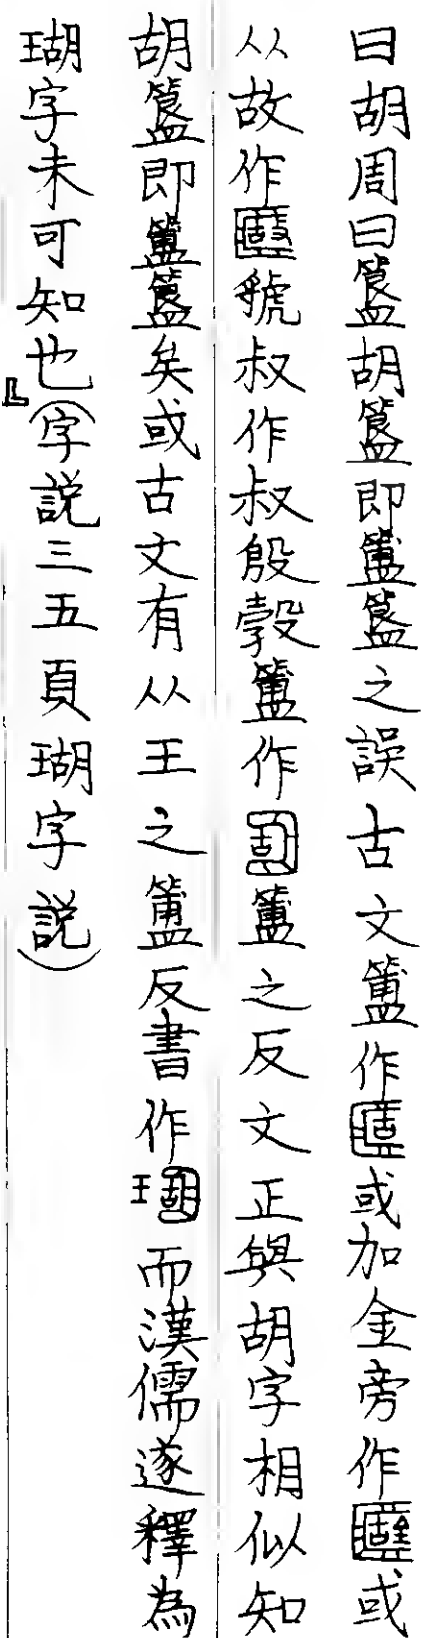 曰胡周曰簋胡簋即簠簋之誤古文簠作或加金旁作或
从故作虢叔作叔殷簠作簠之反文正與胡字相似知
胡簋即簠簋矣或古文有从王之簠反書作而漢儒遂釋為
瑚字未可知也』(字説三五頁瑚字説)